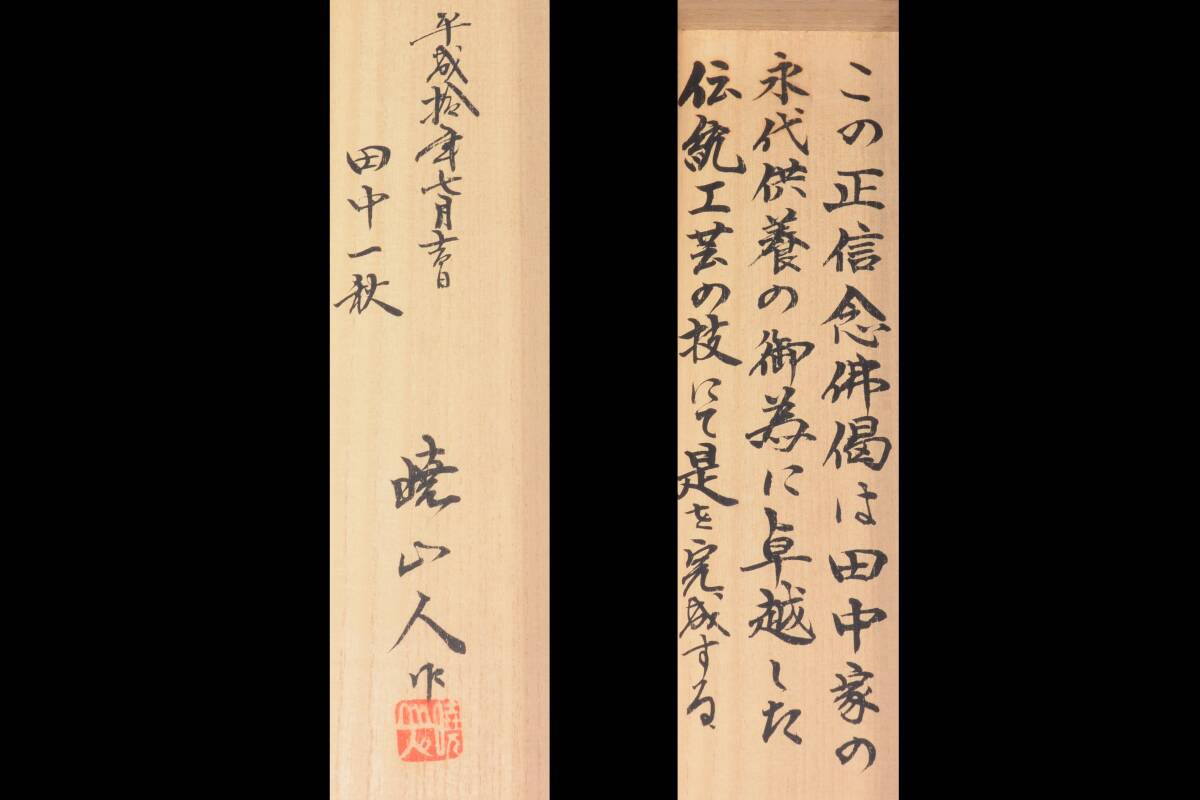 この正信念佛偈は田中家の
永代供養の御為に卓越した
伝統工芸の技にて是を完成する
平成拾年七月吉日
田中一秋
暁山人作